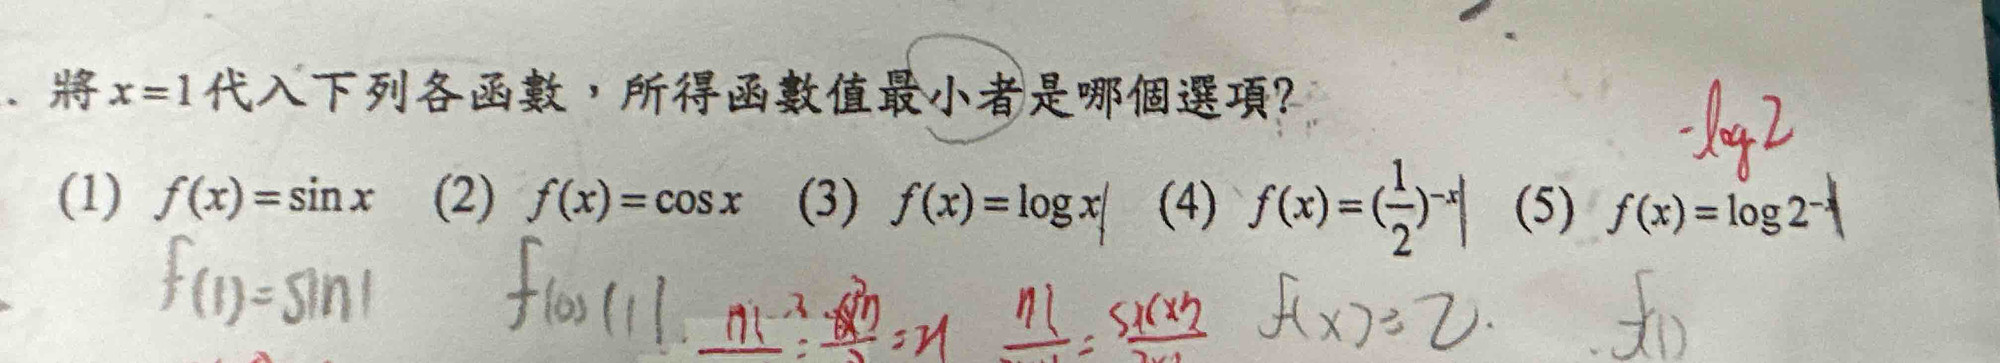 . 將x=1代入下列各函數,所得函數值最小者是哪個選項?
-log2
(1) f(x)=sinx (2) f(x)=cosx (3) f(x)=logx (4) f(x)=(1/2)^-x (5) f(x)=log2^-x
f(1)=sin1 f(x)=2.